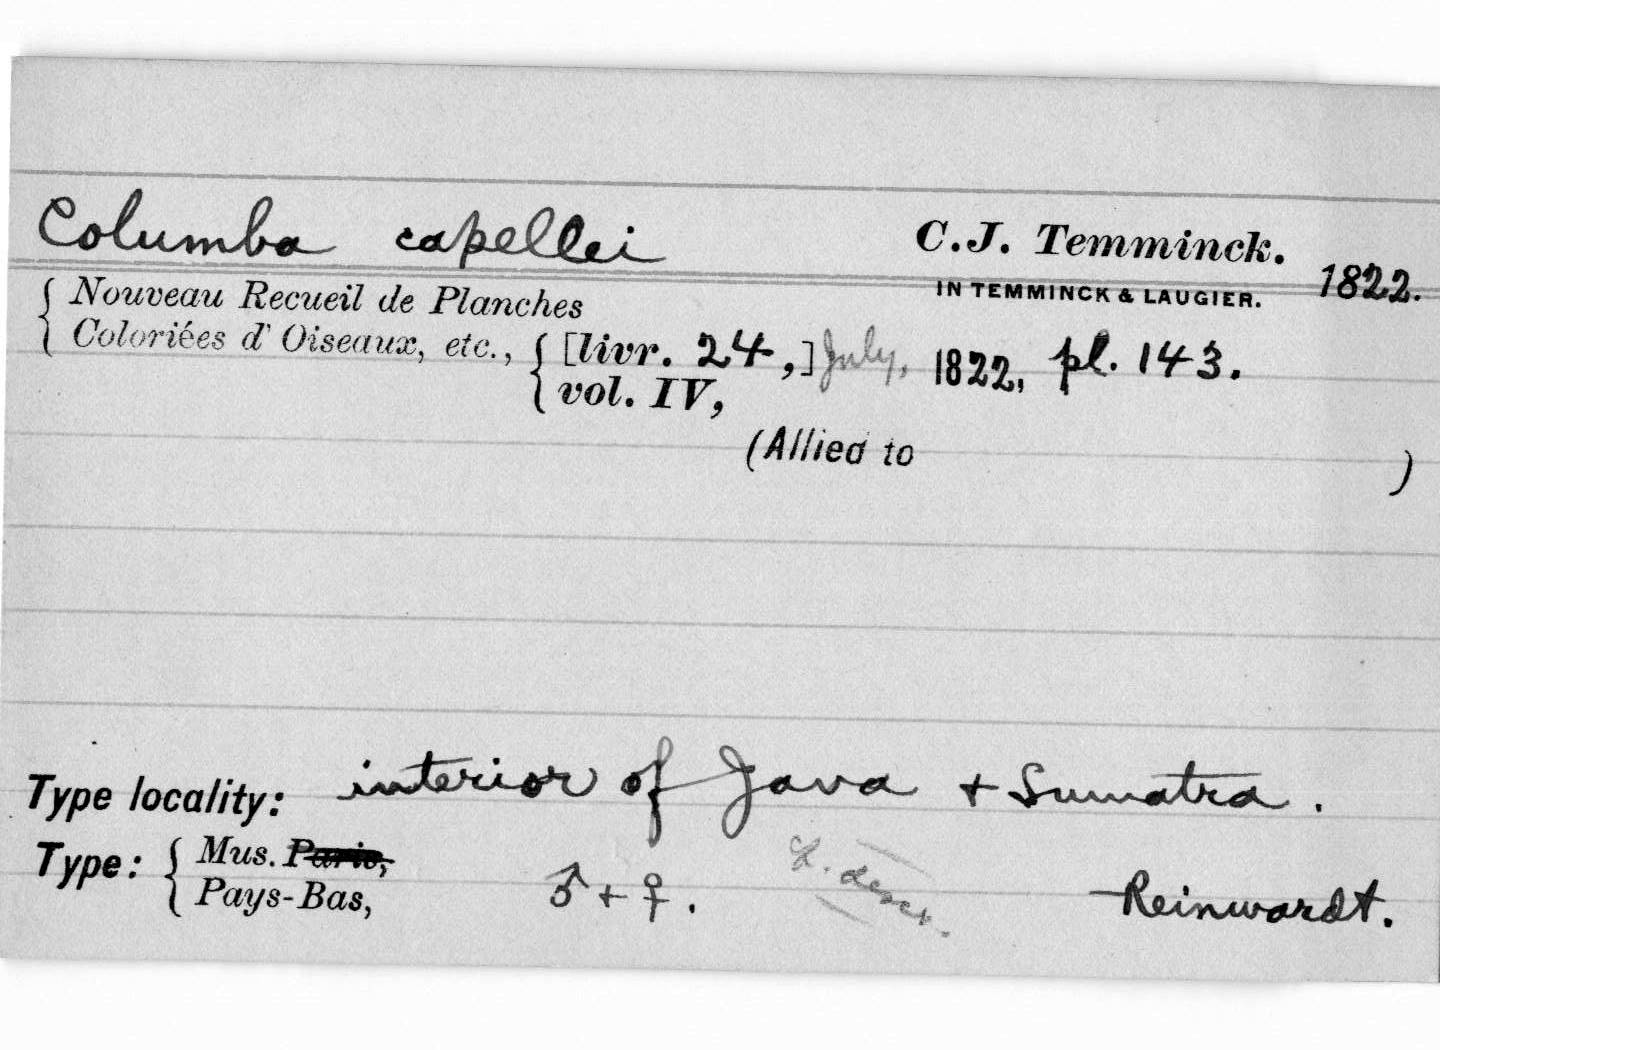 Columba capellei C.J. Temminck.
IN TEMMINCK & LAUGIER. 1822.
{ Nouveau Recueil de Planches
Coloriées d'Oiseaux, etc., { [livr. 24,] July, 1822, pl. 143.
vol. IV,
(Allied to )
Type locality: interior of Java + Sumatra.
Type: { Mus. Paris,
Pays-Bas, ♂ + ♀. descr. Reinwardt.